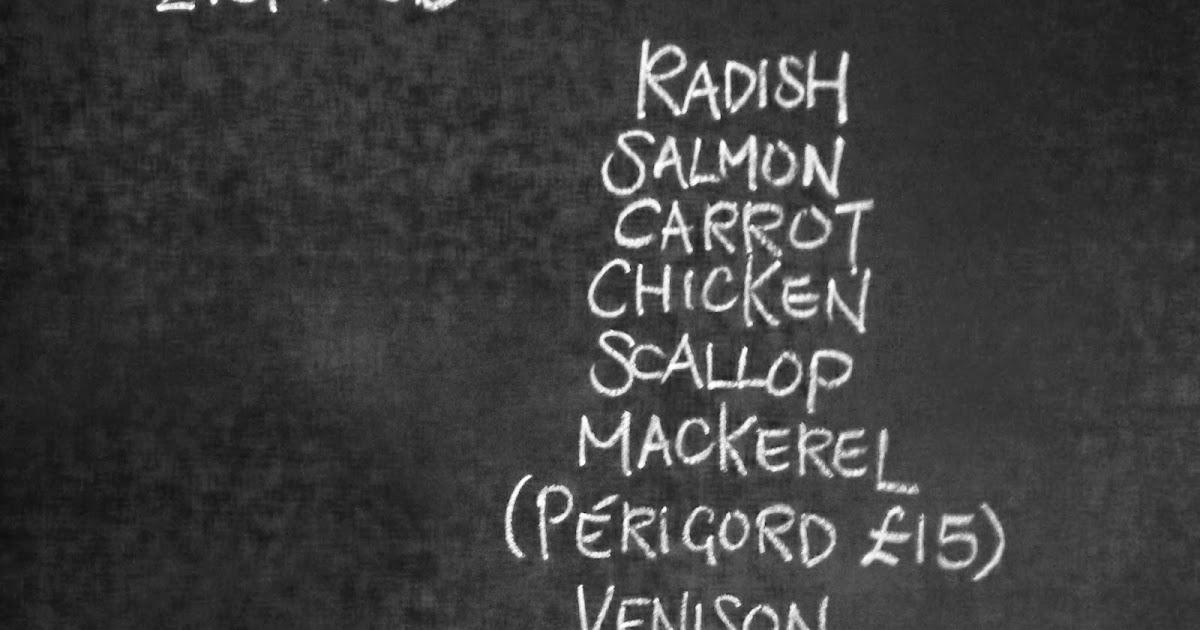 RADISH
SALMON
CARROT
CHICKEN
SCALLOP
MACKEREL
(PÉRIGORD £15)
VENISON